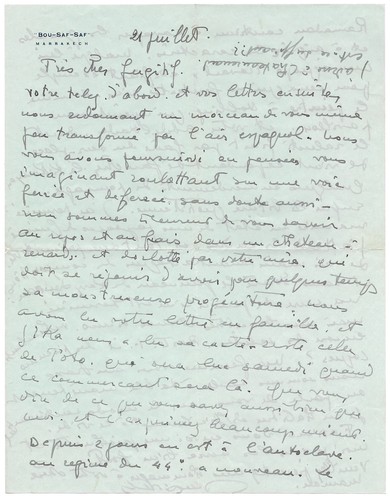 BOU-SAF-SAF
MARRAKECH
21 juillet.
j'adresse à Chateauneuf
est-ce suffisant ?
Très cher fugitif.
votre télég. d'abord et vos lettres ensuite
nous redonnant un morceau de vous même
peu transformé par l'air espagnol. Nous
vous avons poursuivi en pensées vous
imaginant roulottant sur une voie
ferrée et déferrée, sans doute aussi
nous sommes heureux de vous savoir
au repos et au frais dans un chateau à
renards, et dorloté par votre mère, qui
doit se réjouir d'avoir pour quelques temps
sa monstrueuse progéniture. nous
avons lu votre lettre en famille, et
nous a lu sa carte. reste celle
de Toto, qui sera lue samedi quand
ce commerçant sera là. que vous
dire de ce que vous savez aussi bien que
moi, et l'exprimez beaucoup mieux.
Depuis 2 jours on est à l'autoclave.
au régime du 44° à nouveau. Le